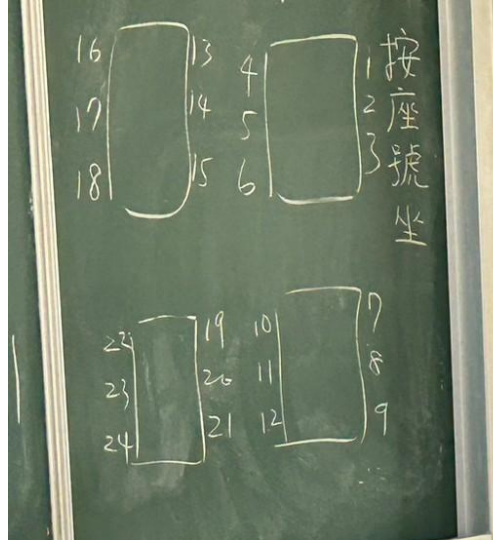 按座號坐
16 13 4 1
17 14 5 2
18 15 6 3
22 19 10 7
23 20 11 8
24 21 12 9